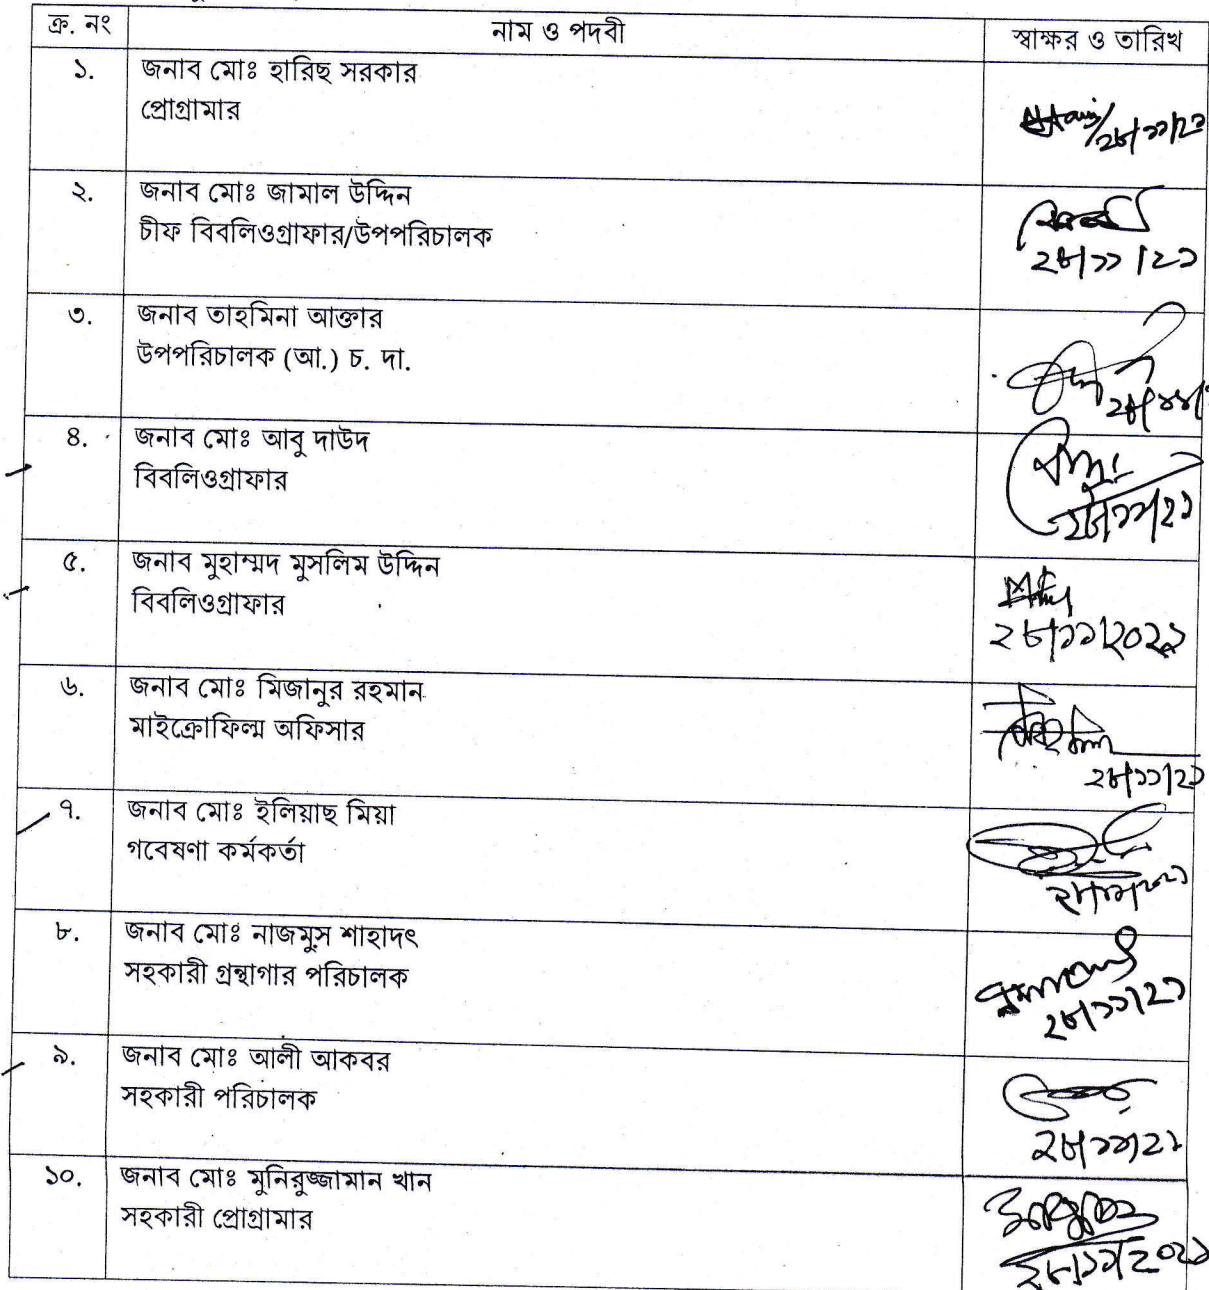 ক্র. নং নাম ও পদবী স্বাক্ষর ও তারিখ
১. জনাব মোঃ হারিছ সরকার
প্রোগ্রামার
২৮/১১/২১
২. জনাব মোঃ জামাল উদ্দিন
চীফ বিবলিওগ্রাফার/উপপরিচালক
২৮/১১/২১
৩. জনাব তাহমিনা আক্তার
উপপরিচালক (আ.) চ. দা.
৪. জনাব মোঃ আবু দাউদ
বিবলিওগ্রাফার
২৮/১১/২১
৫. জনাব মুহাম্মদ মুসলিম উদ্দিন
বিবলিওগ্রাফার
২৮/১১/২০২১
৬. জনাব মোঃ মিজানুর রহমান
মাইক্রোফিল্ম অফিসার
২৮/১১/২১
৭. জনাব মোঃ ইলিয়াছ মিয়া
গবেষণা কর্মকর্তা
২৮/১১/২০২১
৮. জনাব মোঃ নাজমুস শাহাদৎ
সহকারী গ্রন্থাগার পরিচালক
২৮/১১/২১
৯. জনাব মোঃ আলী আকবর
সহকারী পরিচালক
২৮/১১/২১
১০. জনাব মোঃ মুনিরুজ্জামান খান
সহকারী প্রোগ্রামার
২৮/১১/২০২১